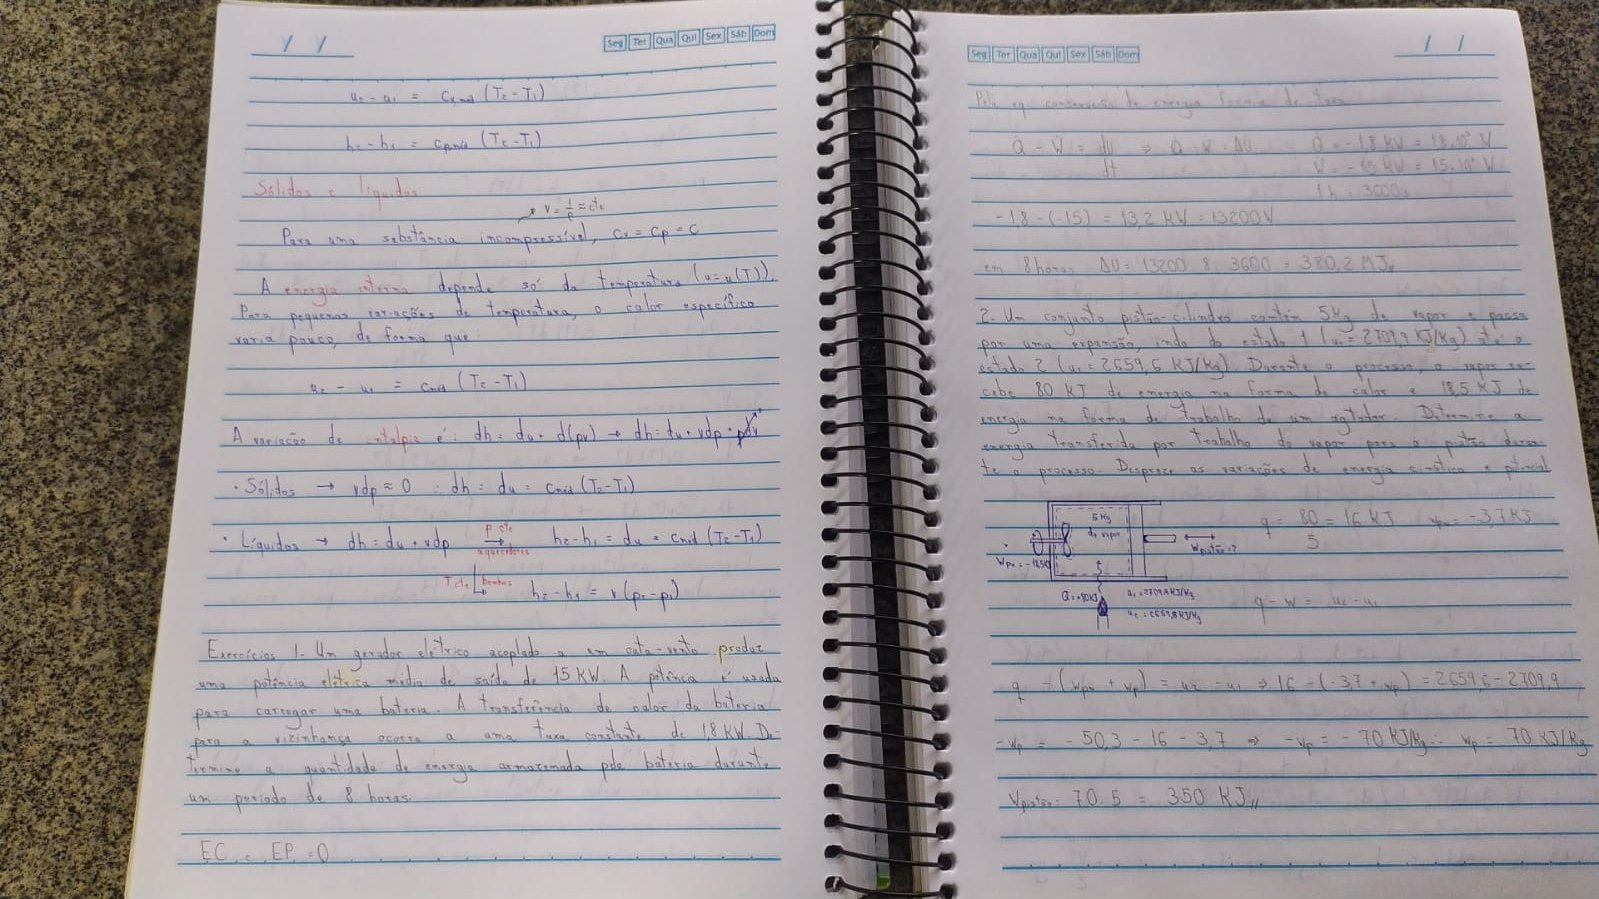 Seg Ter Qua Qui Sex Sáb Dom
u₂ - u₁ = Cv,méd (T₂ - T₁)
h₂ - h₁ = Cp,méd (T₂ - T₁)
Sólidos e líquidos
v = 1/ρ ≈ cte
Para uma substância incompressível, Cv = Cp = C
A energia interna depende só da temperatura (u=u(T)).
Para pequenas variações de temperatura, o calor específico
varia pouco, de forma que:
u₂ - u₁ = Cméd (T₂ - T₁)
A variação de entalpia é: dh = du + d(pv) → dh = du + vdp + pdv
· Sólidos → vdp ≈ 0 ∴ dh = du = Cméd (T₂ - T₁)
· Líquidos → dh = du + vdp p cte aquecedores → h₂ - h₁ = du = Cméd (T₂ - T₁)
T cte bombas h₂ - h₁ = v(p₂ - p₁)
Exercícios 1- Um gerador elétrico acoplado a um cata-vento produz
uma potência elétrica média de saída de 15 KW. A potência é usada
para carregar uma bateria. A transferência de calor da bateria
para a vizinhança ocorre a uma taxa constante de 1,8 KW. De-
termine a quantidade de energia armazenada pela bateria durante
um período de 8 horas.
EC = EP = 0
Seg Ter Qua Qui Sex Sáb Dom
Pela eq conservação de energia forma de taxa
Q̇ - Ẇ = dU/dt ⇒ Q̇ - Ẇ = ΔU Q̇ = -1,8 KW = 1,8.10³ W
Ẇ = -15 KW = 15.10³ W
1h = 3600s
-1,8 - (-15) = 13,2 KW = 13200 W
em 8 horas ΔU = 13200 . 8 . 3600 = 380,2 MJ//
2. Um conjunto pistão-cilindro contém 5Kg de vapor e passa
por uma expansão, indo do estado 1 (u₁ = 2709,9 KJ/Kg) até o
estado 2 (u₂ = 2659,6 KJ/Kg). Durante o processo, o vapor re-
cebe 80 KJ de energia na forma de calor e 18,5 KJ de
energia na forma de trabalho de um agitador. Determine a
energia transferida por trabalho do vapor para o pistão duran-
te o processo. Despreze as variações de energia cinética e potencial
5 Kg
de vapor
Wpistão = ?
Wpw = -18,5KJ
Q = +80KJ
u₁ = 2709,9 KJ/Kg
u₂ = 2659,6 KJ/Kg
q = 80/5 = 16 KJ wpw = -3,7 KJ
q - w = u₂ - u₁
q - (wpw + wp) = u₂ - u₁ ⇒ 16 - (-3,7 + wp) = 2659,6 - 2709,9
-wp = -50,3 - 16 - 3,7 ⇒ -wp = -70 KJ/Kg ∴ wp = 70 KJ/Kg
Wpistão = 70.5 = 350 KJ//